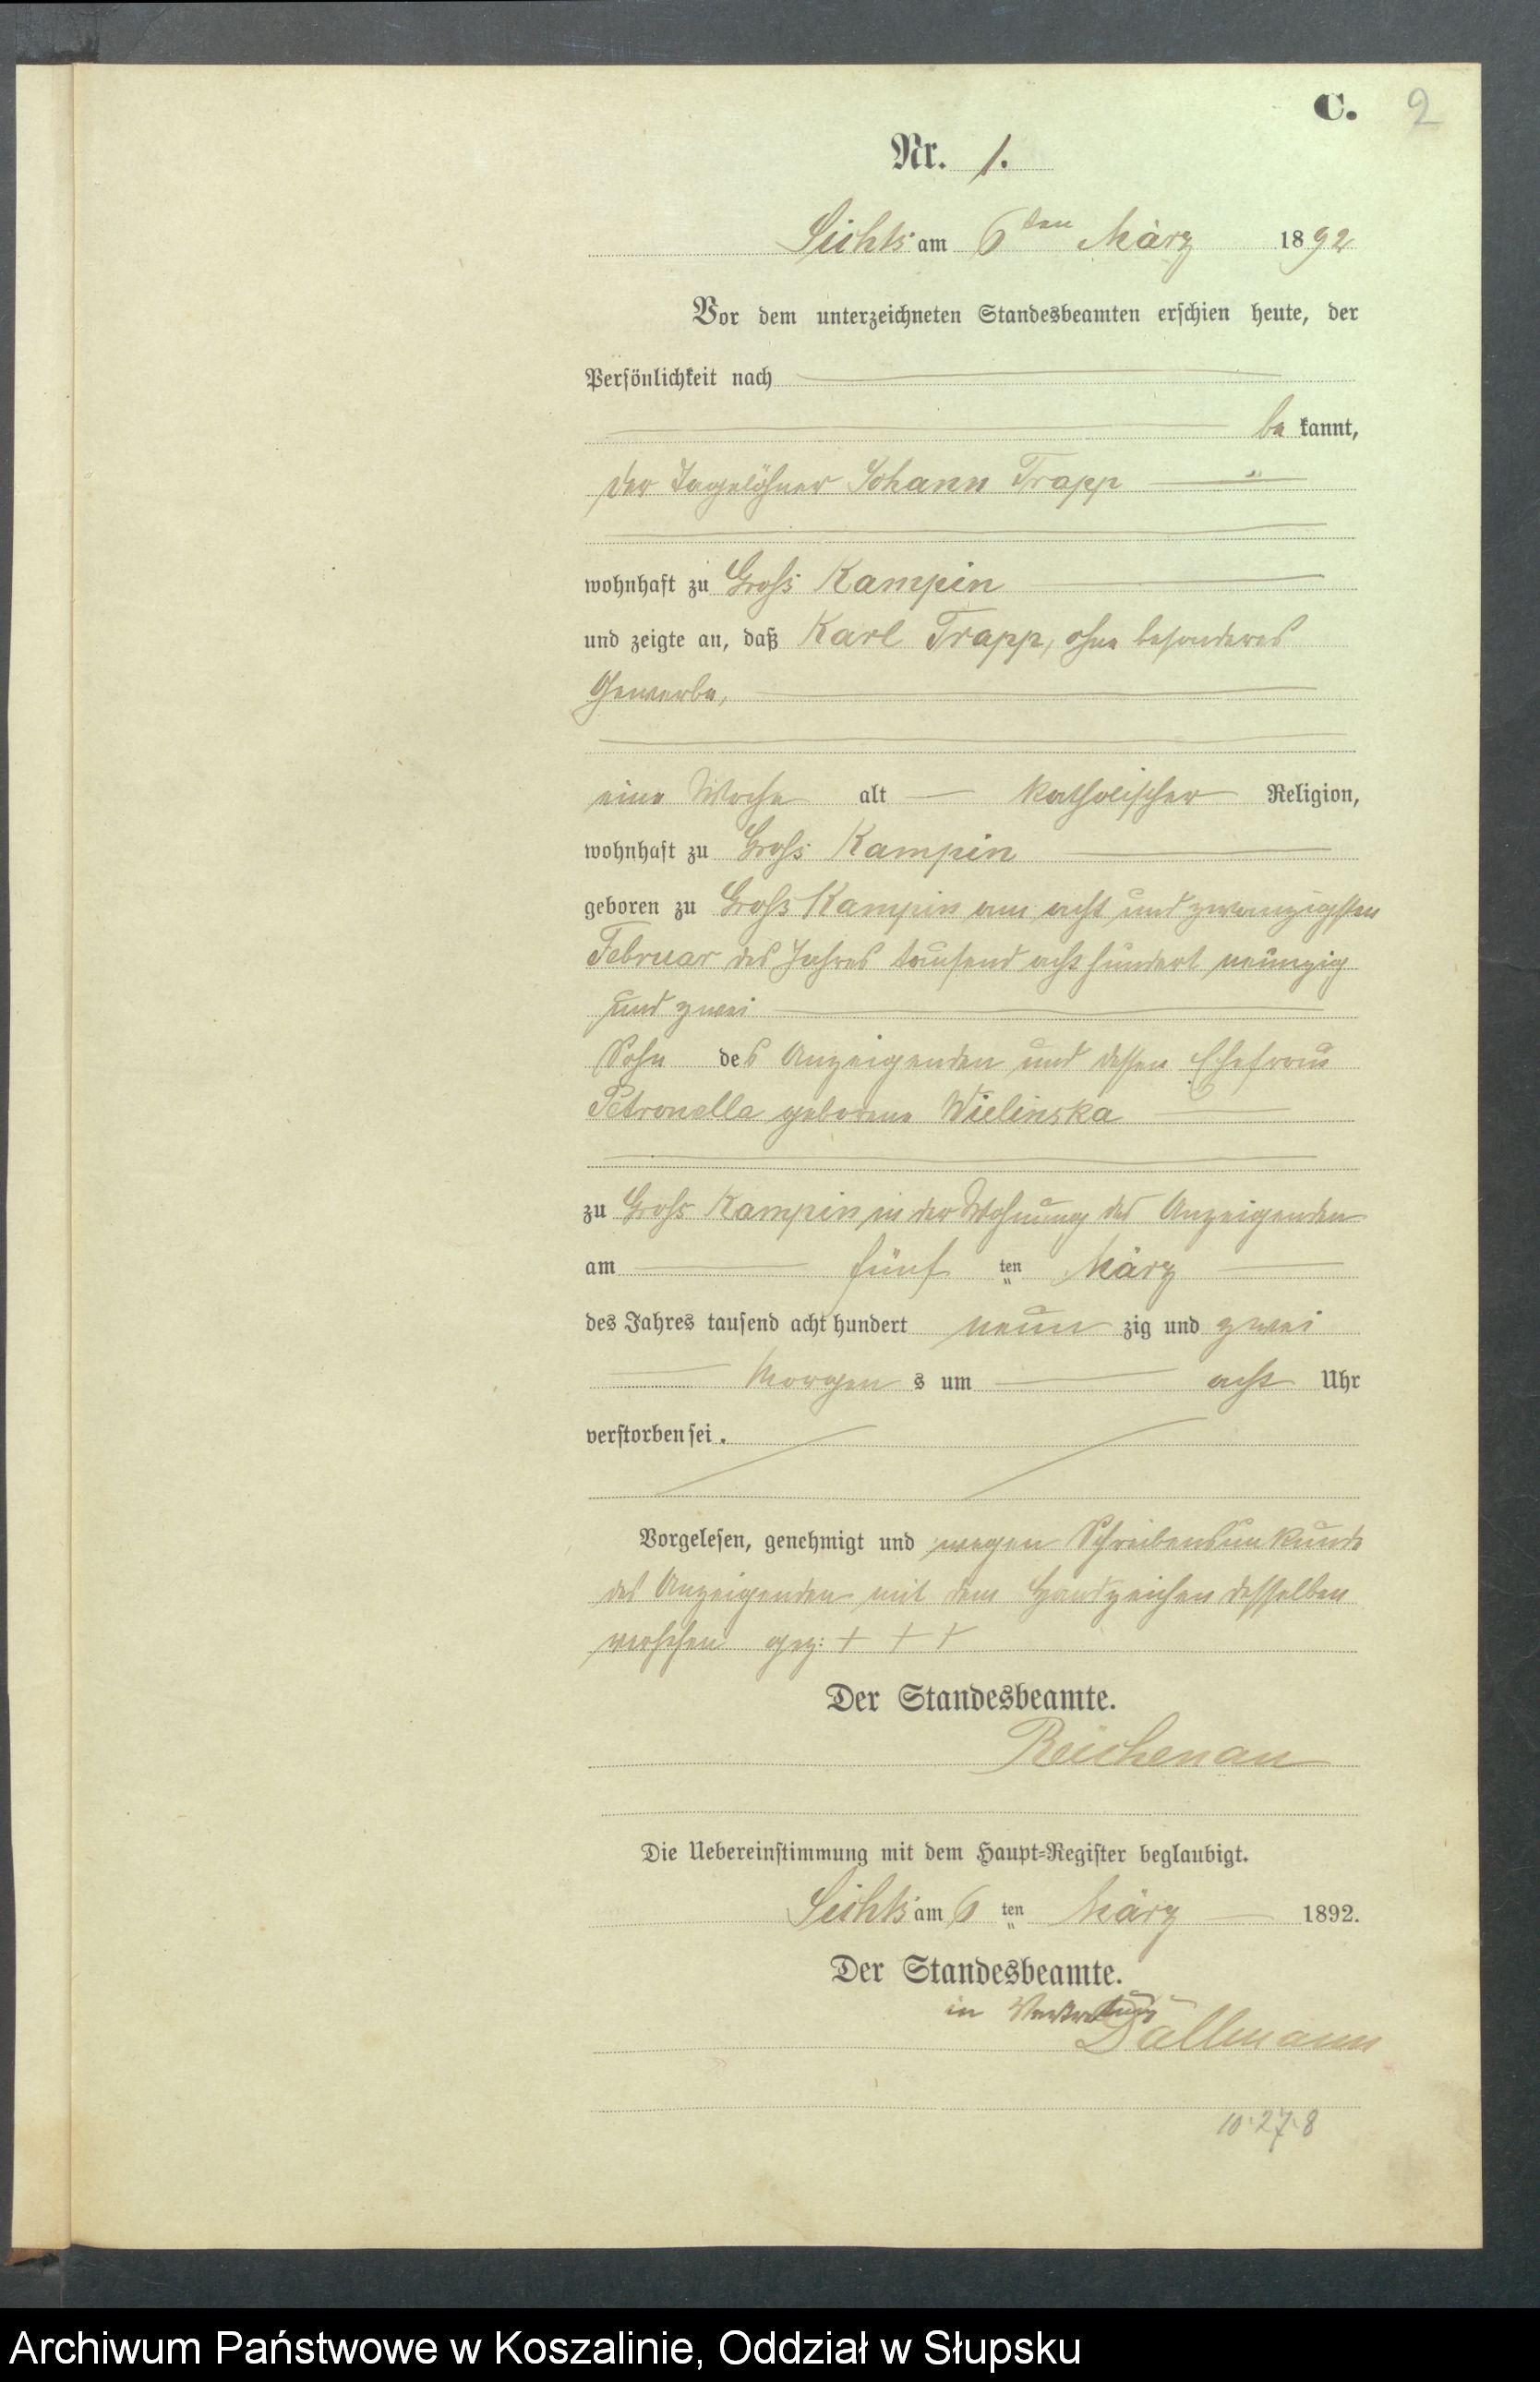 C. 2
Nr. 1.
Sichts am 6ten März 1892
Vor dem unterzeichneten Standesbeamten erschien heute, der
Persönlichkeit nach
be kannt,
der Tagelöhner Johann Trapp
wohnhaft zu Groß Kampin
und zeigte an, daß Karl Trapp, ohne besonderes
Gewerbe,
eine Woche alt katholischer Religion,
wohnhaft zu Groß Kampin
geboren zu Groß Kampin am acht und zwanzigsten
Februar des Jahres tausend acht hundert neunzig
und zwei
Sohn des Anzeigenden und dessen Ehefrau
Petronella geborene Wielinska
zu Groß Kampin in der Wohnung des Anzeigenden
am fünf ten März
des Jahres tausend acht hundert neun zig und zwei
Morgen s um acht Uhr
verstorben sei.
Vorgelesen, genehmigt und wegen Schreibensunkunde
des Anzeigenden mit dem Handzeichen desselben
versehen gez: + + +
Der Standesbeamte.
Reichenau
Die Uebereinstimmung mit dem Haupt-Register beglaubigt.
Sichts am 6 ten März 1892.
Der Standesbeamte.
in Vertretung
Dallmann
10.27.8
Archiwum Państwowe w Koszalinie, Oddział w Słupsku